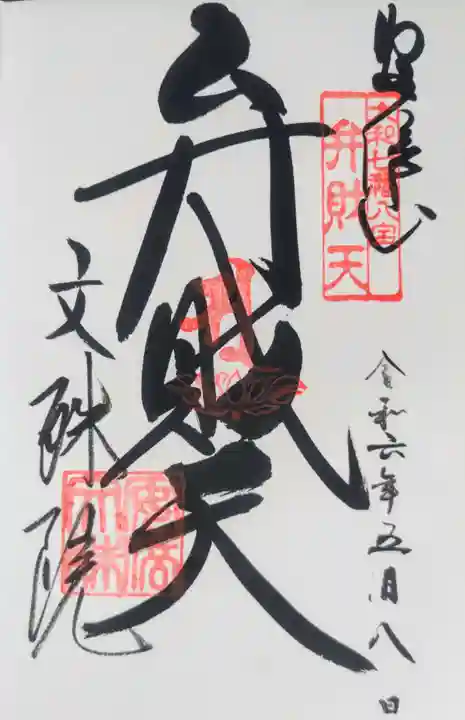 奉拝
大和七福八宝
弁財天
令和六年五月八日
弁財天
文殊院